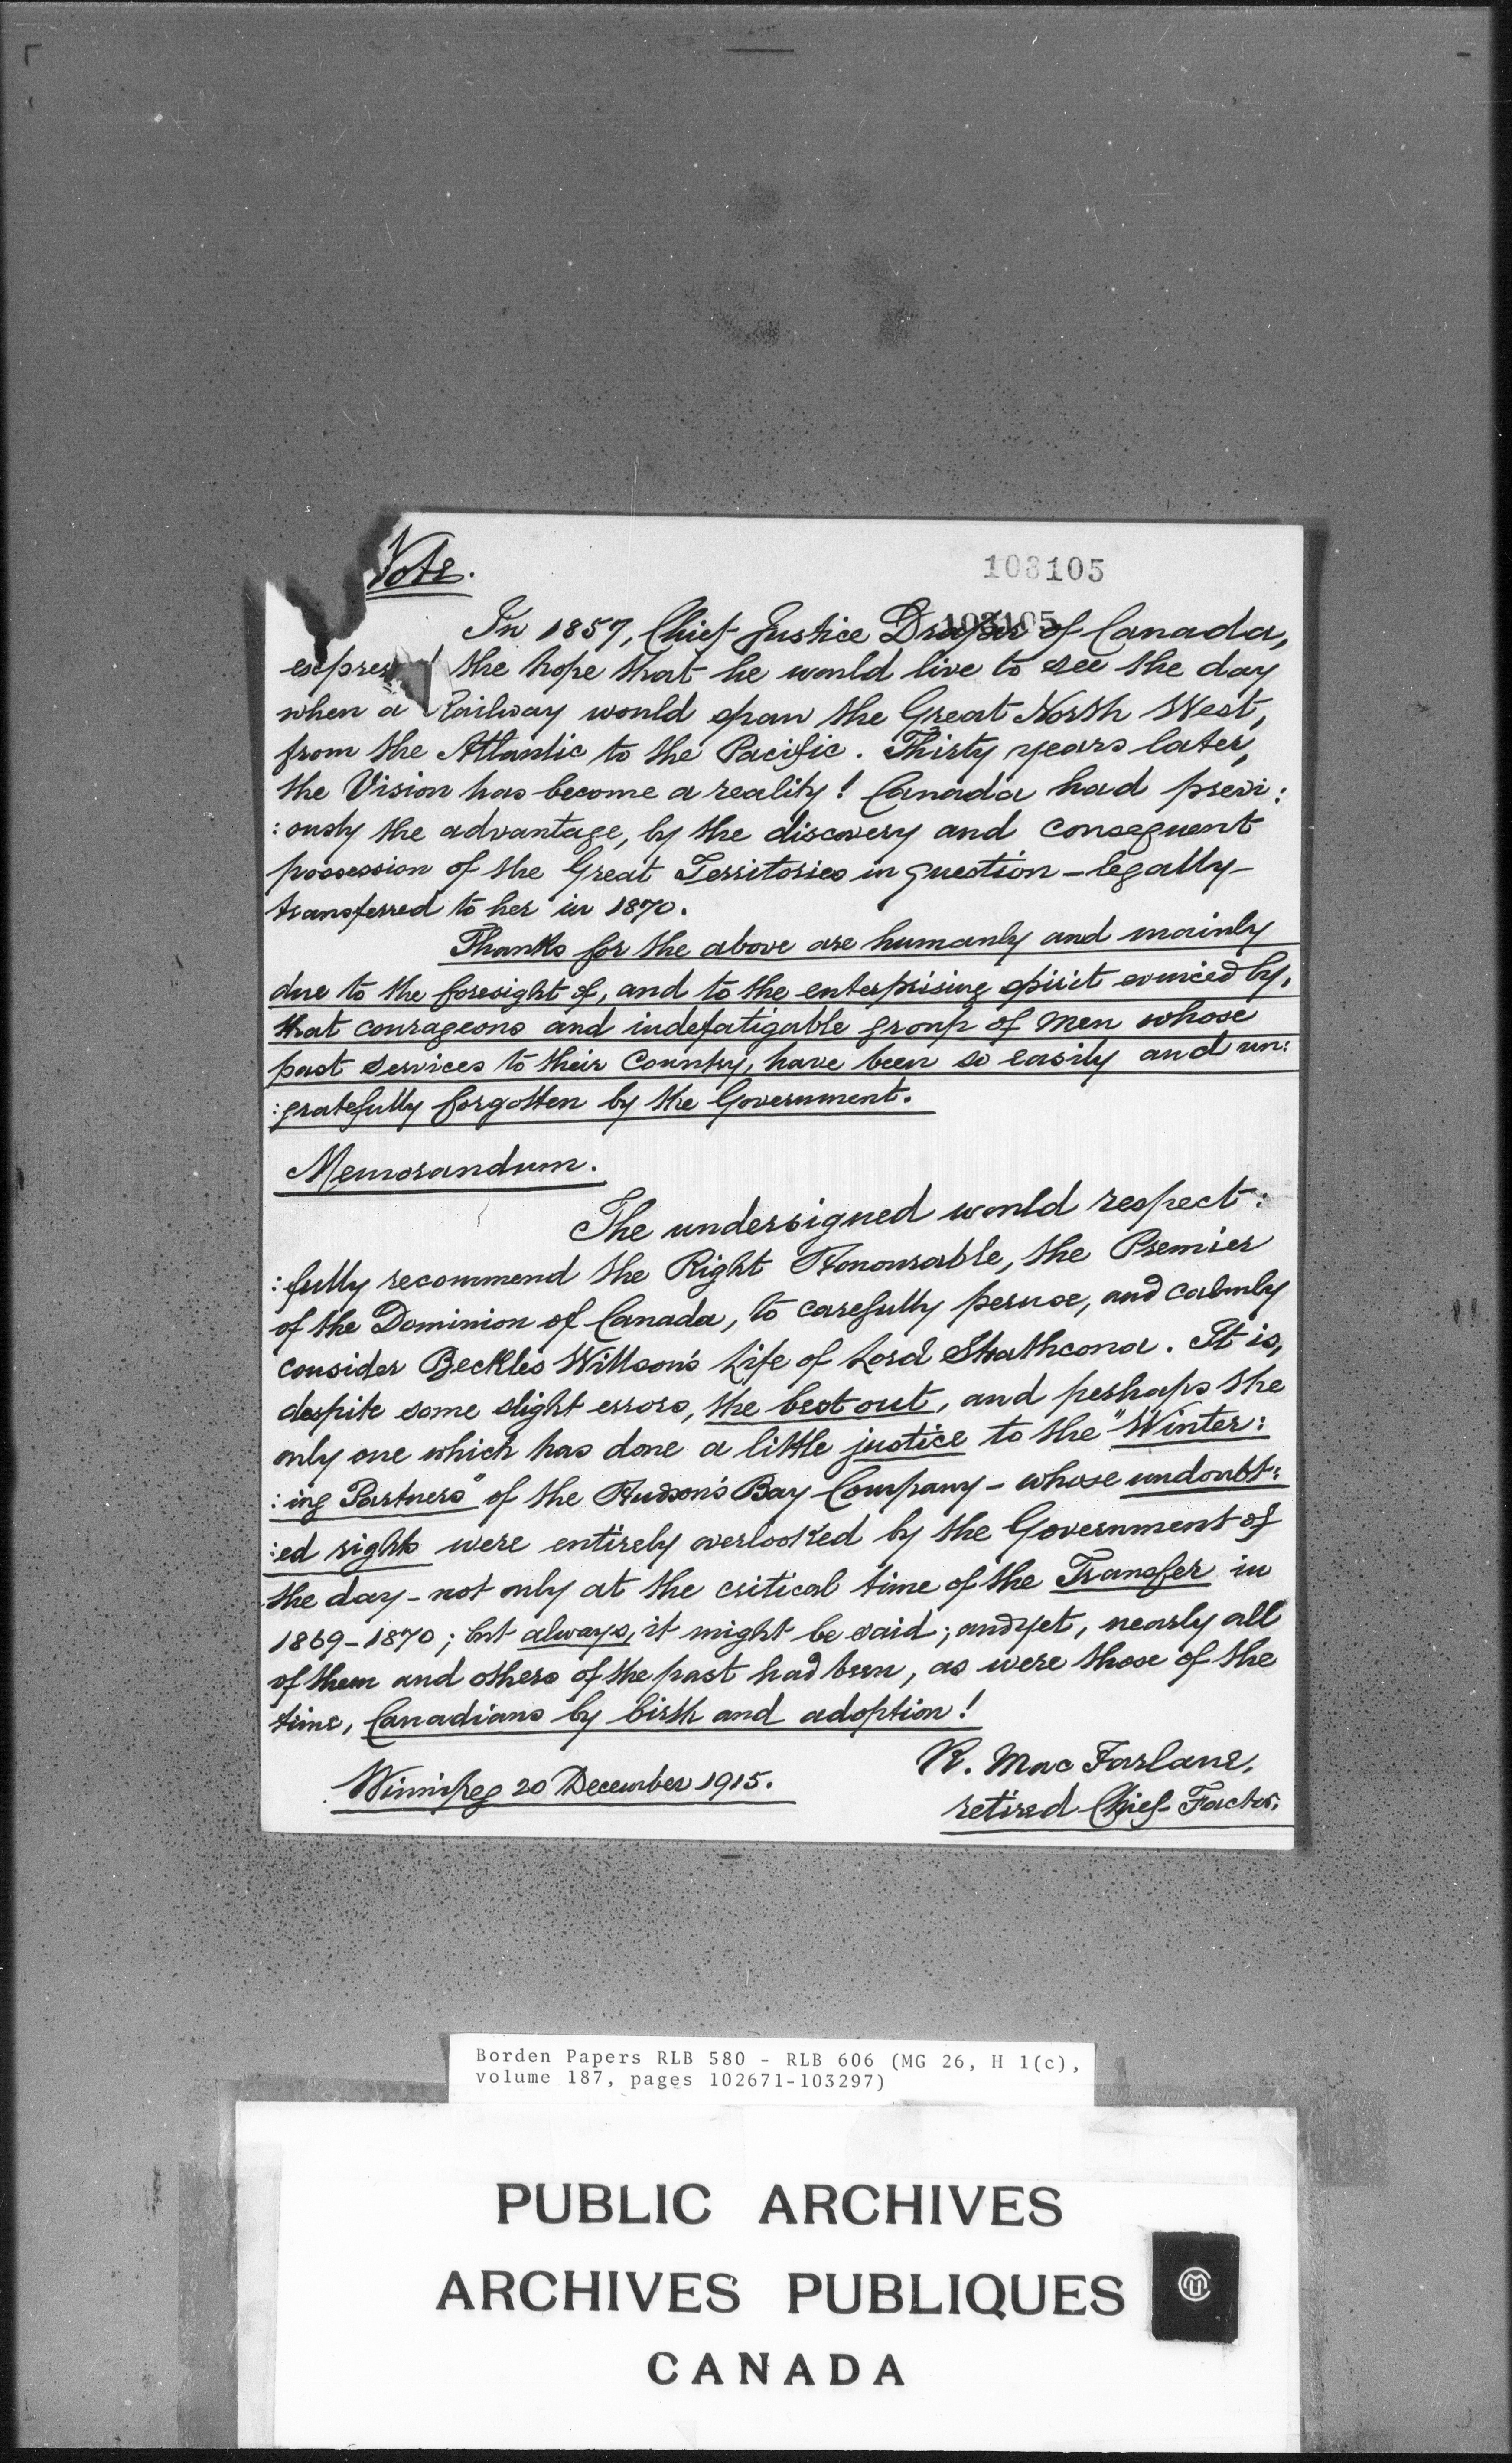 Note.
103105
In 1857, Chief Justice Draper of Canada,
103105
expressed the hope that he would live to see the day
when a Railway would span the Great North West,
from the Atlantic to the Pacific. Thirty years later,
the Vision has become a reality! Canada had previ:
:ously the advantage, by the discovery and consequent
possession of the Great Territories in question - legally -
transferred to her in 1870.
Thanks for the above are humanly and mainly
due to the foresight of, and to the enterprising spirit evinced by,
that courageous and indefatigable group of men whose
past services to their Country, have been so easily and un:
:gratefully forgotten by the Government.
Memorandum.
The undersigned would respect:
:fully recommend the Right Honourable, the Premier
of the Dominion of Canada, to carefully peruse, and calmly
consider Beckles Willson's Life of Lord Strathcona. It is,
despite some slight errors, the best out, and perhaps the
only one which has done a little justice to the "Winter:
:ing Partners" of the Hudson's Bay Company - whose undoubt:
:ed rights were entirely overlooked by the Government of
the day - not only at the critical time of the Transfer in
1869-1870; but always, it might be said; and yet, nearly all
of them and others of the past had been, as were those of the
time, Canadians by birth and adoption!
R. MacFarlane,
Winnipeg 20 December 1915.
retired Chief Factor.
Borden Papers RLB 580 - RLB 606 (MG 26, H 1(c),
volume 187, pages 102671-103297)
PUBLIC ARCHIVES
ARCHIVES PUBLIQUES
CANADA